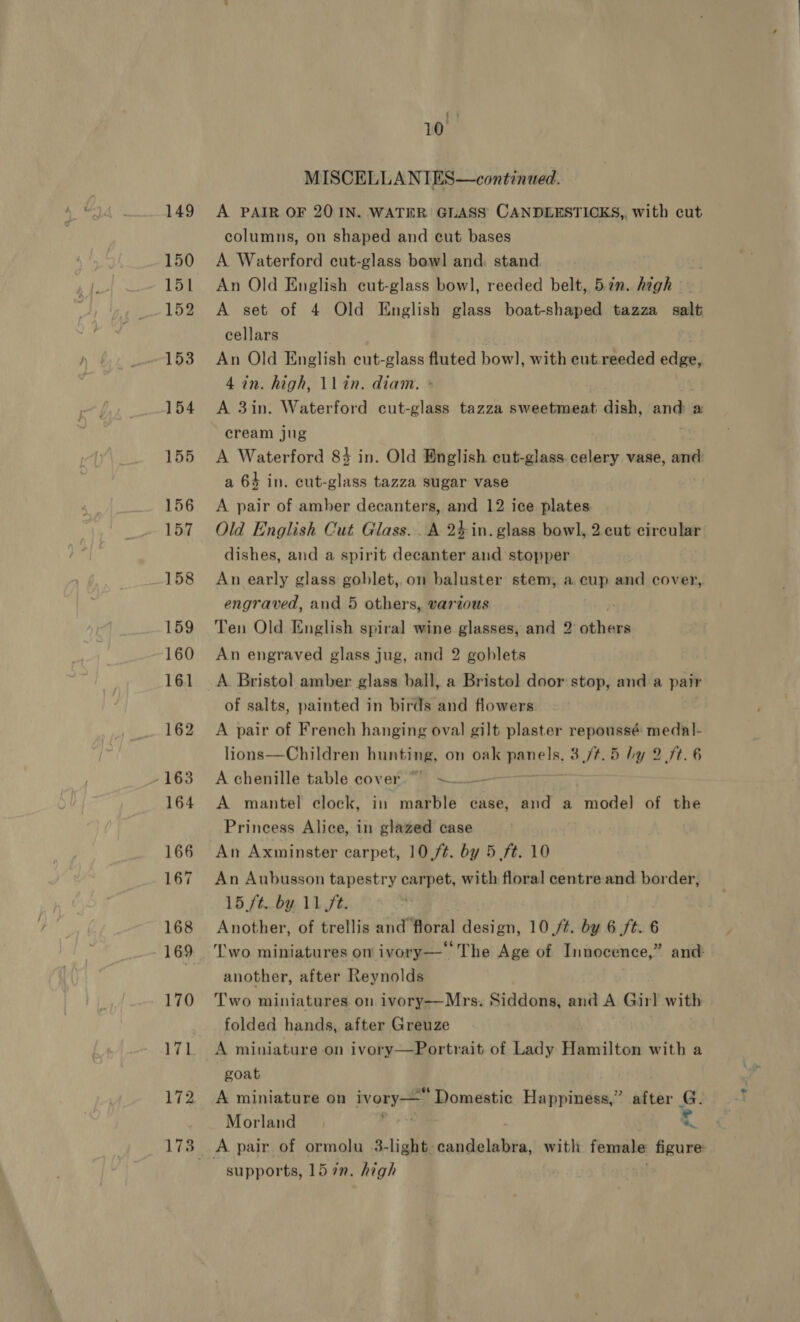 10
MISCELLANIES—continued.
149 A PAIR OF 20 IN. WATER GLASS CANDLESTICKS, with cut
columns, on shaped and cut bases
150 A Waterford cut-glass bowl and stand
151 An Old English cut-glass bowl, reeded belt, 5 in. high
152 A set of 4 Old English glass boat-shaped tazza salt
cellars
153 An Old English cut-glass fluted bowl, with cut reeded edge,
4 in. high, 11 in. diam.
154 A 3in. Waterford cut-glass tazza sweetmeat dish, and a
cream jug
155 A Waterford 8½ in. Old English cut-glass celery vase, and
a 6½ in. cut-glass tazza sugar vase
156 A pair of amber decanters, and 12 ice plates
157 Old English Cut Glass. A 2½ in. glass bowl, 2 cut circular
dishes, and a spirit decanter and stopper
158 An early glass goblet, on baluster stem, a cup and cover,
engraved, and 5 others, various
159 Ten Old English spiral wine glasses, and 2 others
160 An engraved glass jug, and 2 goblets
161 A Bristol amber glass ball, a Bristol door stop, and a pair
of salts, painted in birds and flowers
162 A pair of French hanging oval gilt plaster repoussé medal-
lions—Children hunting, on oak panels, 3 ft. 5 by 2 ft. 6
163 A chenille table cover
164 A mantel clock, in marble case, and a model of the
Princess Alice, in glazed case
166 An Axminster carpet, 10 ft. by 5 ft. 10
167 An Aubusson tapestry carpet, with floral centre and border,
15 ft. by 11 ft.
168 Another, of trellis and floral design, 10 ft. by 6 ft. 6
169 Two miniatures on ivory—“The Age of Innocence,” and
another, after Reynolds
170 Two miniatures on ivory—Mrs. Siddons, and A Girl with
folded hands, after Greuze
171 A miniature on ivory—Portrait of Lady Hamilton with a
goat
172 A miniature on ivory—“Domestic Happiness,” after G.
Morland
173 A pair of ormolu 3-light candelabra, with female figure
supports, 15 in. high